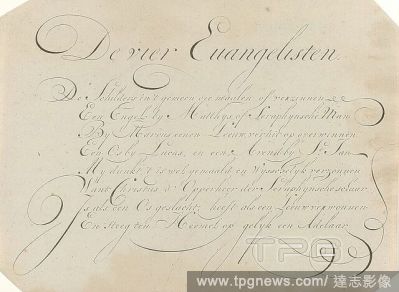 De vier Euangelisten.
De Schilders in't gemeen die maalen of verzinnen
Een Engel by Mattheys of Seraphynsche Man
By Marcus eenen Leeuw, verhit op overwinnen
Een Os by Lucas, en een Arend by St. Jan
My dunkt, 't is wel gemaald en wysselyk verzonnen
Want Christus d' Opperheer der Seraphynsche schaar,
Is als een Os geslacht, heeft als een Leeuw verwonnen
En steeg ten Hemel op gelyk een Adelaar.
TPG
www.tpgnews.com / 達志影像